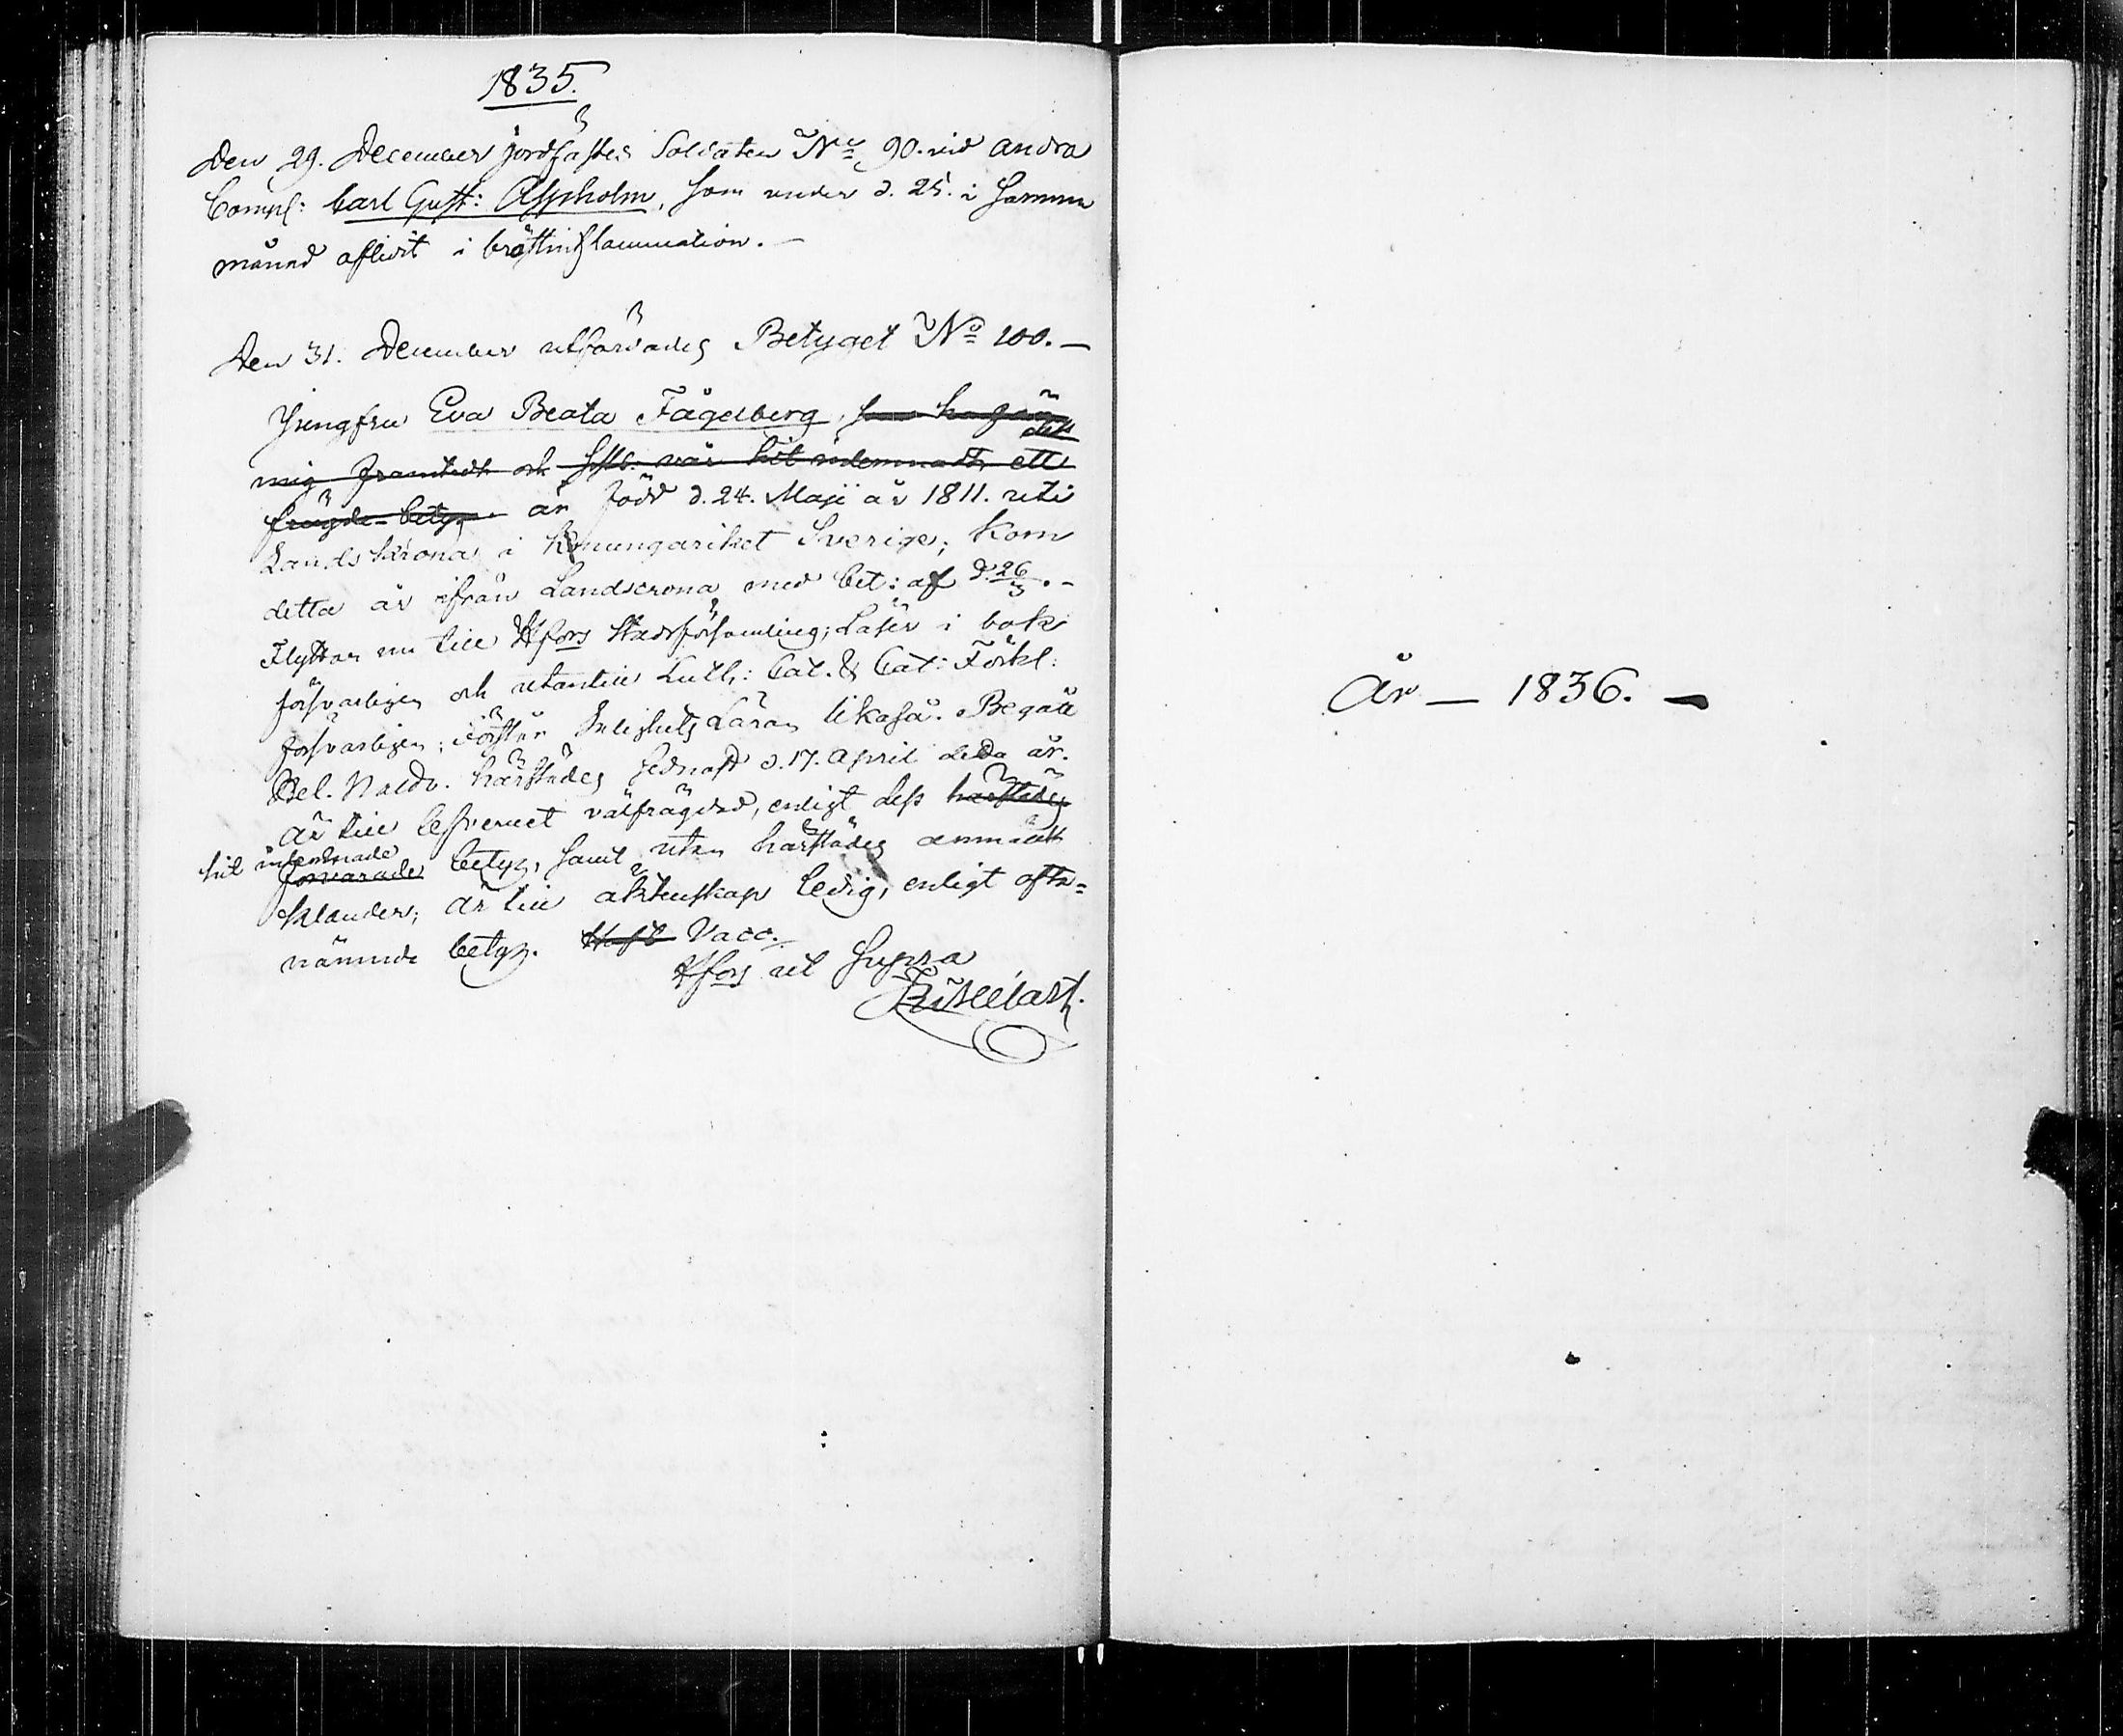 1835.
Den 29. December jordfästes Soldaten No 90. vid andra
Comp: Carl Gust: Aspholm, som under d. 25. i samma
månad aflidit i bröstinflammation. —
Den 31. December utfärdades Betyget No 100. —
Jungfru Eva Beata Fågelberg,
mig framtedt och hit inlemnadt ett
frägde-betyg är född d. 24. Maji år 1811. uti
Landskrona i Konungariket Sverige; kom
detta år ifrån Landscrona med bet: af d. 26/3. -
Flyttar nu till Hfors Stadsförsamling; Läser i bok
försvarligen och utantill Luth: Cat. & Cat: Förkl:
försvarligen; förstår Salighets Läran likaså. Begått
H. Nattv. härstädes sednast d. 17. April detta år.
Är till lefvernet välfrägdad, enligt dess härstädes
hit inlemnade
förvarade betyg, samt utan härstädes anmäldt
klander; är till äktenskap ledig, enligt ofta=
nämnde betyg. Haft Vacc.
Hfors ut Supra
År — 1836. —